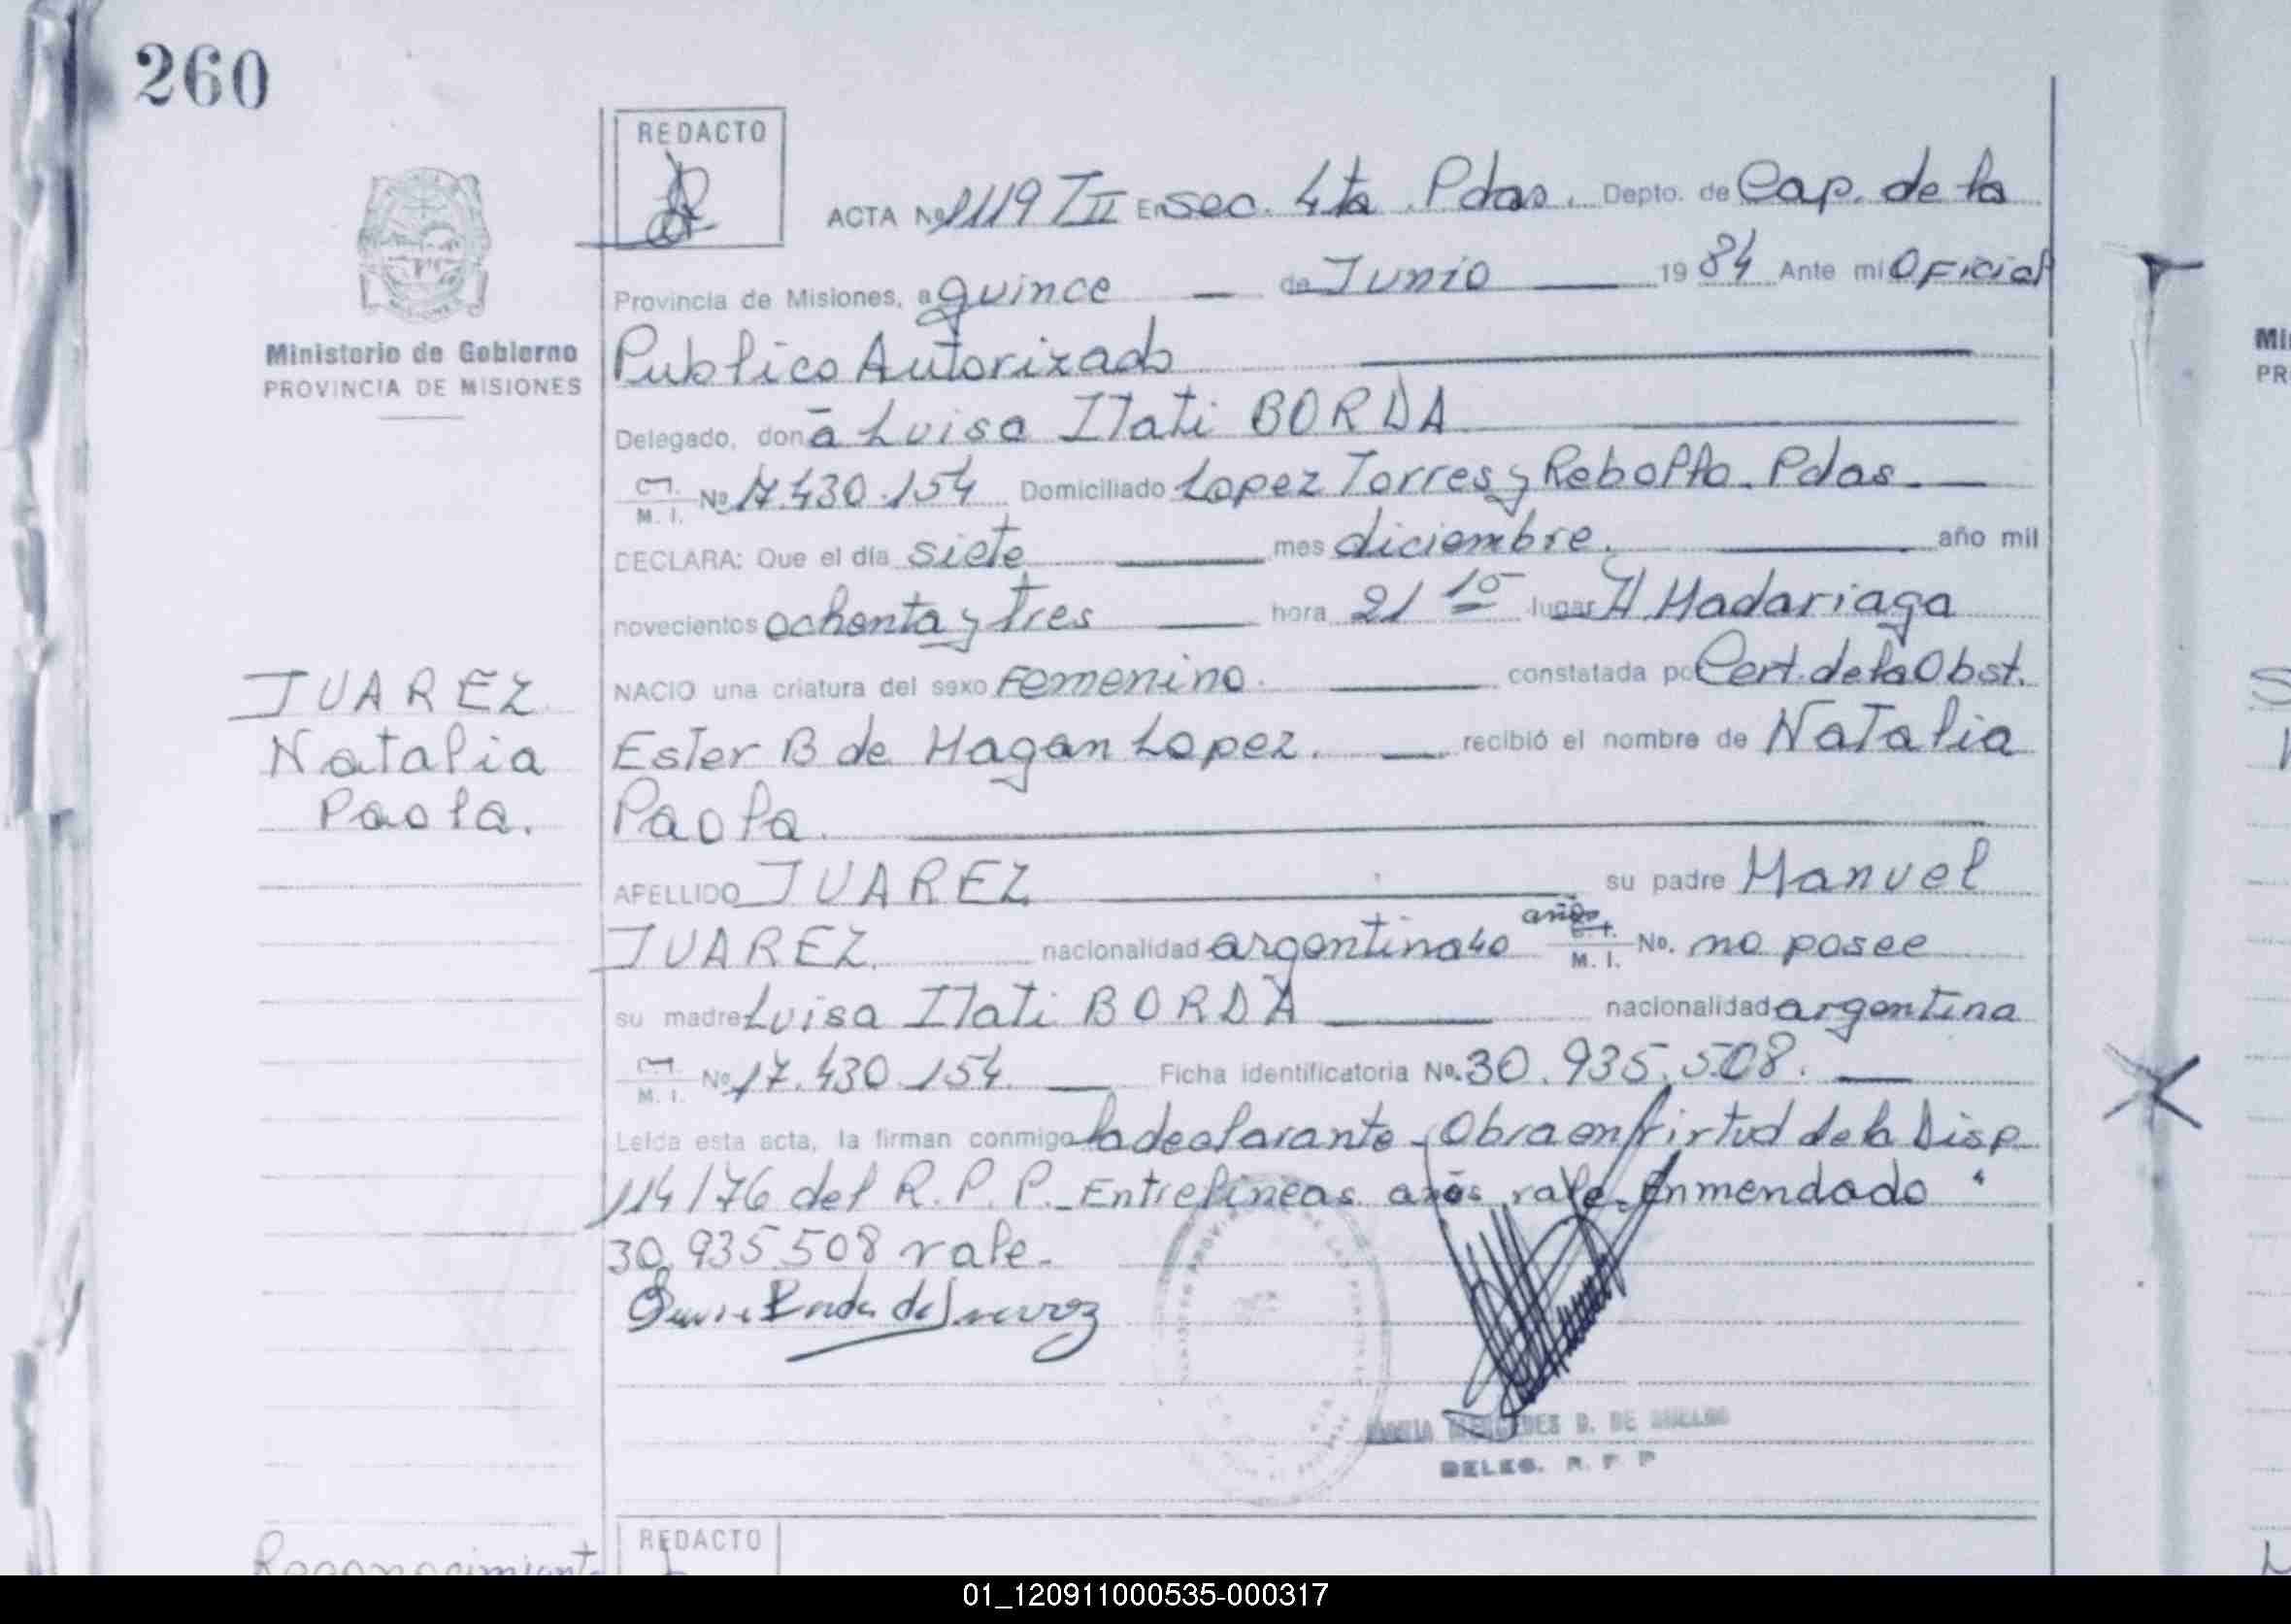 260
REDACTO
ACTA Nº 1119 TII En sec. 4ta. Pdas. Depto. de Cap. de la
Provincia de Misiones, a quince de Junio 1984 Ante mi Oficial
Ministerio de Gobierno
PROVINCIA DE MISIONES
Publico Autorizado
Delegado, don a Luisa Itati BORDA
C.I. M. I. Nº 17.430.154 Domiciliado Lopez Torres y Rebollo. Pdas.
DECLARA: Que el día siete mes diciembre. año mil
novecientos ochenta y tres hora 21 10 lugar H. Madariaga
NACIO una criatura del sexo Femenino. constatada po Cert. de la Obst.
Ester B de Hagan Lopez. recibió el nombre de Natalia
Paola.
JUAREZ
Natalia
Paola.
APELLIDO JUAREZ su padre Manuel
JUAREZ. nacionalidad argentina 40 años M. I. No. no posee
su madre Luisa Itati BORDA nacionalidad argentina
C.I. M. I. Nº 17.430.154. Ficha identificatoria Nº. 30.935.508.
Leída esta acta, la firman conmigo la declarante. Obra en virtud de la Disp.
114/76 del R.P.P. Entrelineas años vale. Enmendado "
30.935.508 vale.
DELEG. R. P P
REDACTO
Reconocimiento
Mi
PR
01_120911000535-000317